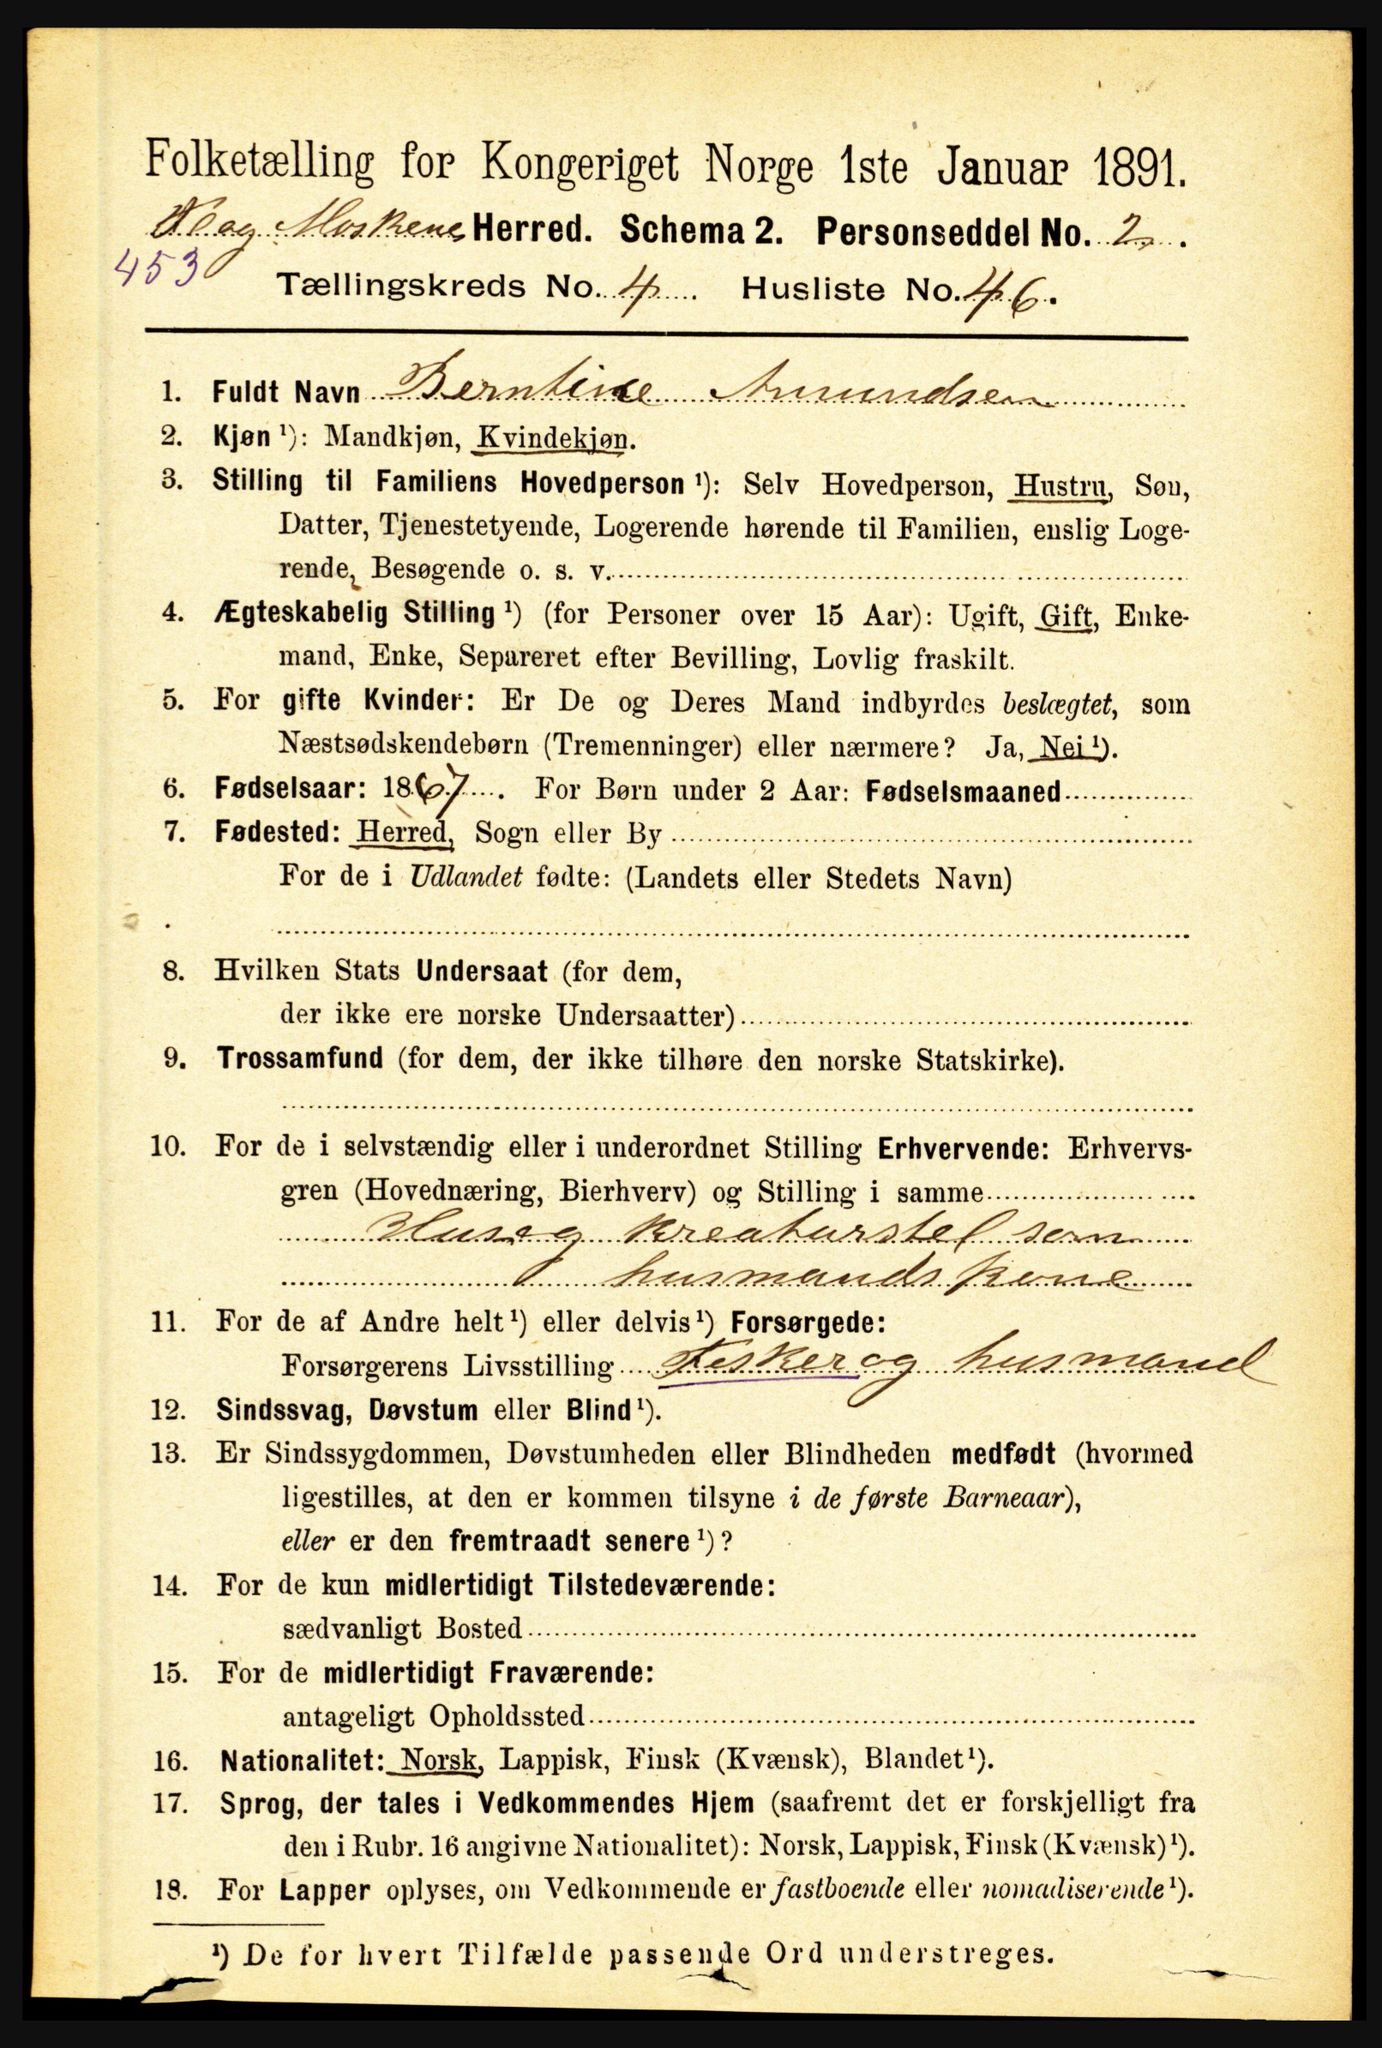 Folketælling for Kongeriget Norge 1ste Januar 1891.
Moskenes Herred. Schema 2. Personseddel No. 2.
453
Tællingskreds No. 4. Husliste No. 46.
1. Fuldt Navn Berntine Amundsen
2. Kjøn ¹): Mandkjøn, Kvindekjøn.
3. Stilling til Familiens Hovedperson ¹): Selv Hovedperson, Hustru, Søn,
Datter, Tjenestetyende, Logerende hørende til Familien, enslig Loge-
rende, Besøgende o. s. v.
4. Ægteskabelig Stilling ¹) (for Personer over 15 Aar): Ugift, Gift, Enke-
mand, Enke, Separeret efter Bevilling, Lovlig fraskilt.
5. For gifte Kvinder: Er De og Deres Mand indbyrdes beslægtet, som
Næstsødskendebørn (Tremenninger) eller nærmere? Ja, Nei ¹).
6. Fødselsaar: 1867. For Børn under 2 Aar: Fødselsmaaned
7. Fødested: Herred, Sogn eller By
For de i Udlandet fødte: (Landets eller Stedets Navn)
8. Hvilken Stats Undersaat (for dem,
der ikke ere norske Undersaatter)
9. Trossamfund (for dem, der ikke tilhøre den norske Statskirke).
10. For de i selvstændig eller i underordnet Stilling Erhvervende: Erhvervs-
gren (Hovednæring, Bierhverv) og Stilling i samme
Hus og kreaturstel som
husmandskone
11. For de af Andre helt ¹) eller delvis ¹) Forsørgede:
Forsørgerens Livsstilling Fisker og husmand
12. Sindssvag, Døvstum eller Blind ¹).
13. Er Sindssygdommen, Døvstumheden eller Blindheden medfødt (hvormed
ligestilles, at den er kommen tilsyne i de første Barneaar),
eller er den fremtraadt senere ¹)?
14. For de kun midlertidigt Tilstedeværende:
sædvanligt Bosted
15. For de midlertidigt Fraværende:
antageligt Opholdssted
16. Nationalitet: Norsk, Lappisk, Finsk (Kvænsk), Blandet ¹).
17. Sprog, der tales i Vedkommendes Hjem (saafremt det er forskjelligt fra
den i Rubr. 16 angivne Nationalitet): Norsk, Lappisk, Finsk (Kvænsk) ¹).
18. For Lapper oplyses, om Vedkommende er fastboende eller nomadiserende ¹).
¹) De for hvert Tilfælde passende Ord understreges.